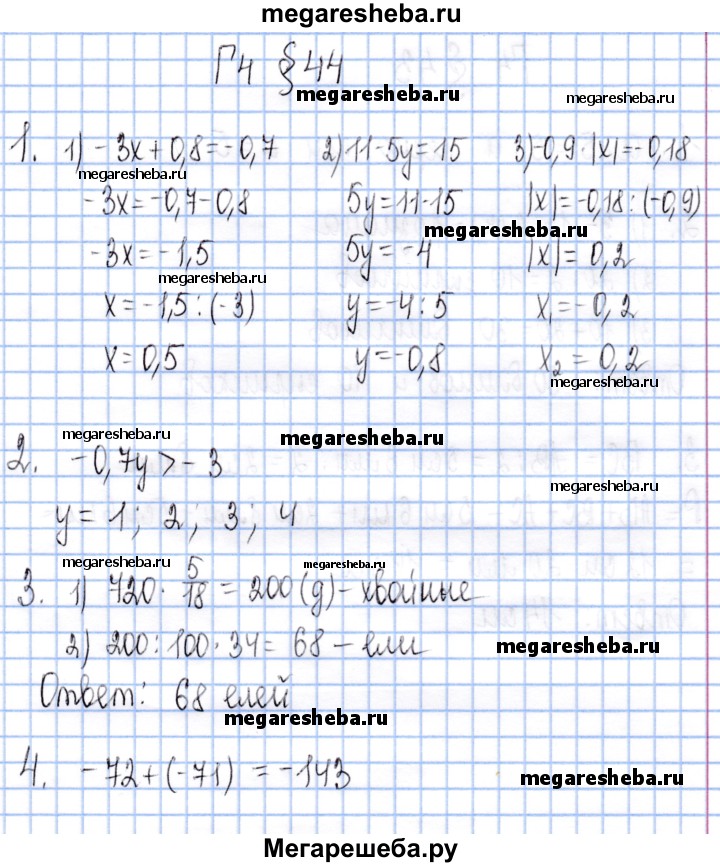 megaresheba.ru
Г4 § 44
megaresheba.ru megaresheba.ru
1. 1) -3x+0,8=-0,7 2) 11-5y=15 3)-0,9·|x|=-0,18
megaresheba.ru
-3x=-0,7-0,8 5y=11-15 |x|=-0,18:(-0,9)
megaresheba.ru
-3x=-1,5 5y=-4 |x|=0,2
megaresheba.ru
x=-1,5:(-3) y=-4:5 x₁=-0,2
x=0,5 y=-0,8 x₂=0,2
megaresheba.ru
megaresheba.ru megaresheba.ru
2. -0,7y>-3
megaresheba.ru
y=1; 2; 3; 4
megaresheba.ru megaresheba.ru
3. 1) 720·5/18=200(д)-хвойные
2) 200:100·34=68-ели
megaresheba.ru
Ответ: 68 елей
megaresheba.ru
4. -72+(-71)=-143
megaresheba.ru
Мегарешеба.ру